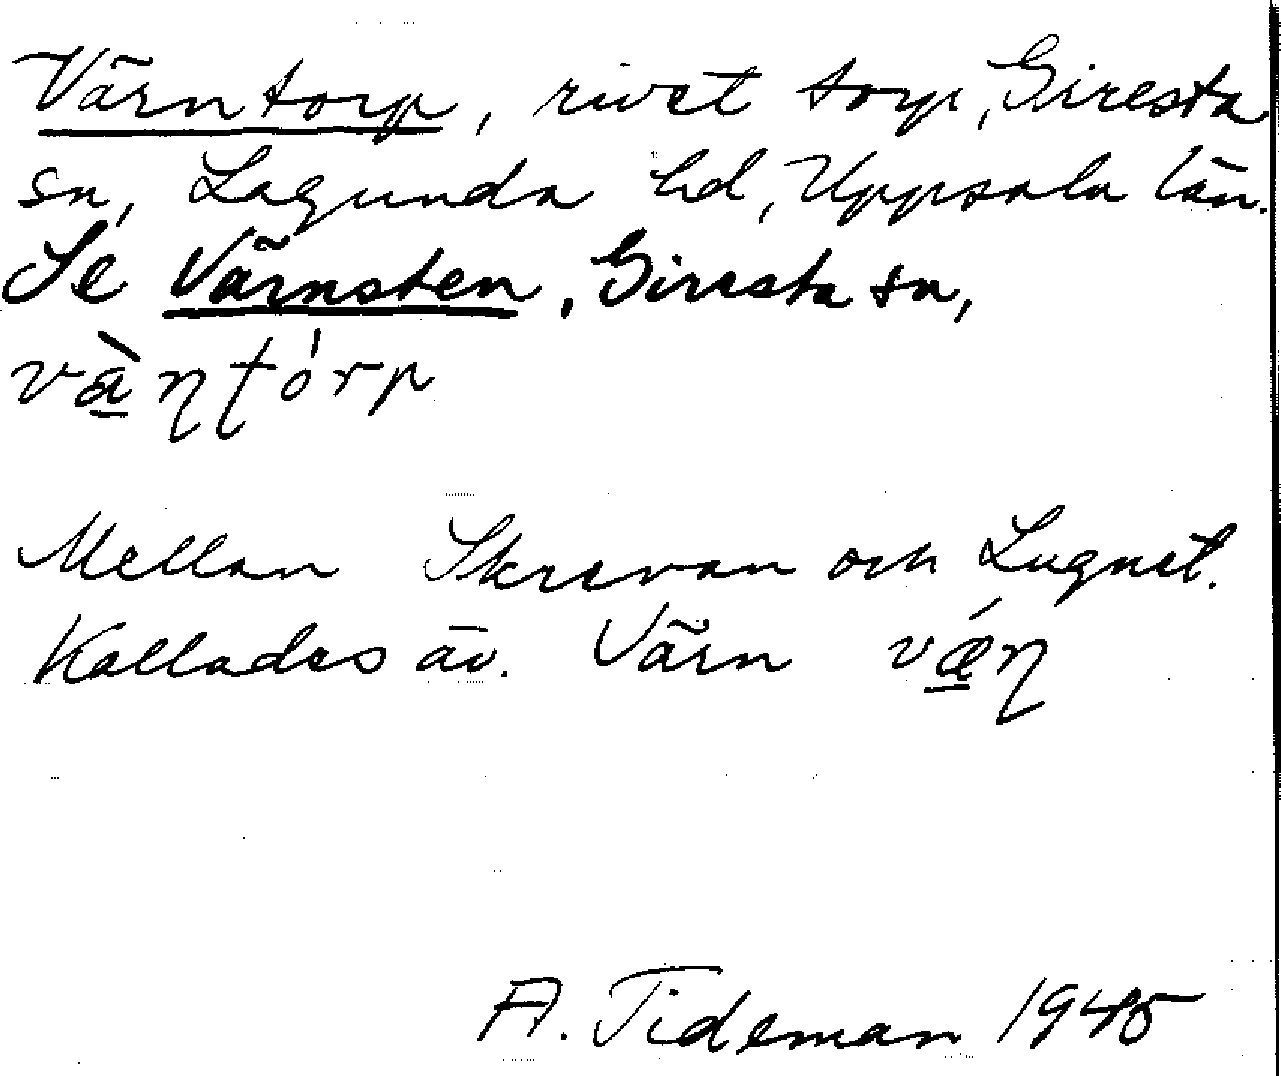 Värntorp, rivet torp, Giresta
sn, Lagunda hd, Uppsala län.
Se Värnsten, Giresta sn,
Mellan Skrevan och Lugnet.
Kallades äv. Värn
A. Tideman 1945